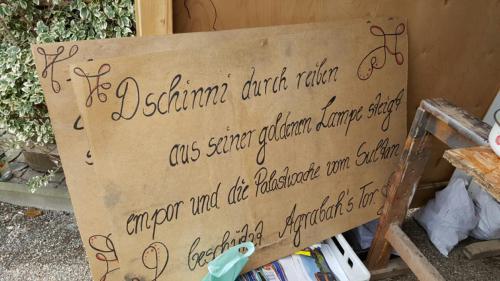 Dschinni durch reiben
aus seiner goldenen Lampe steigt
empor und die Palastwache vom Sultan
beschützt Agrabah's Tor